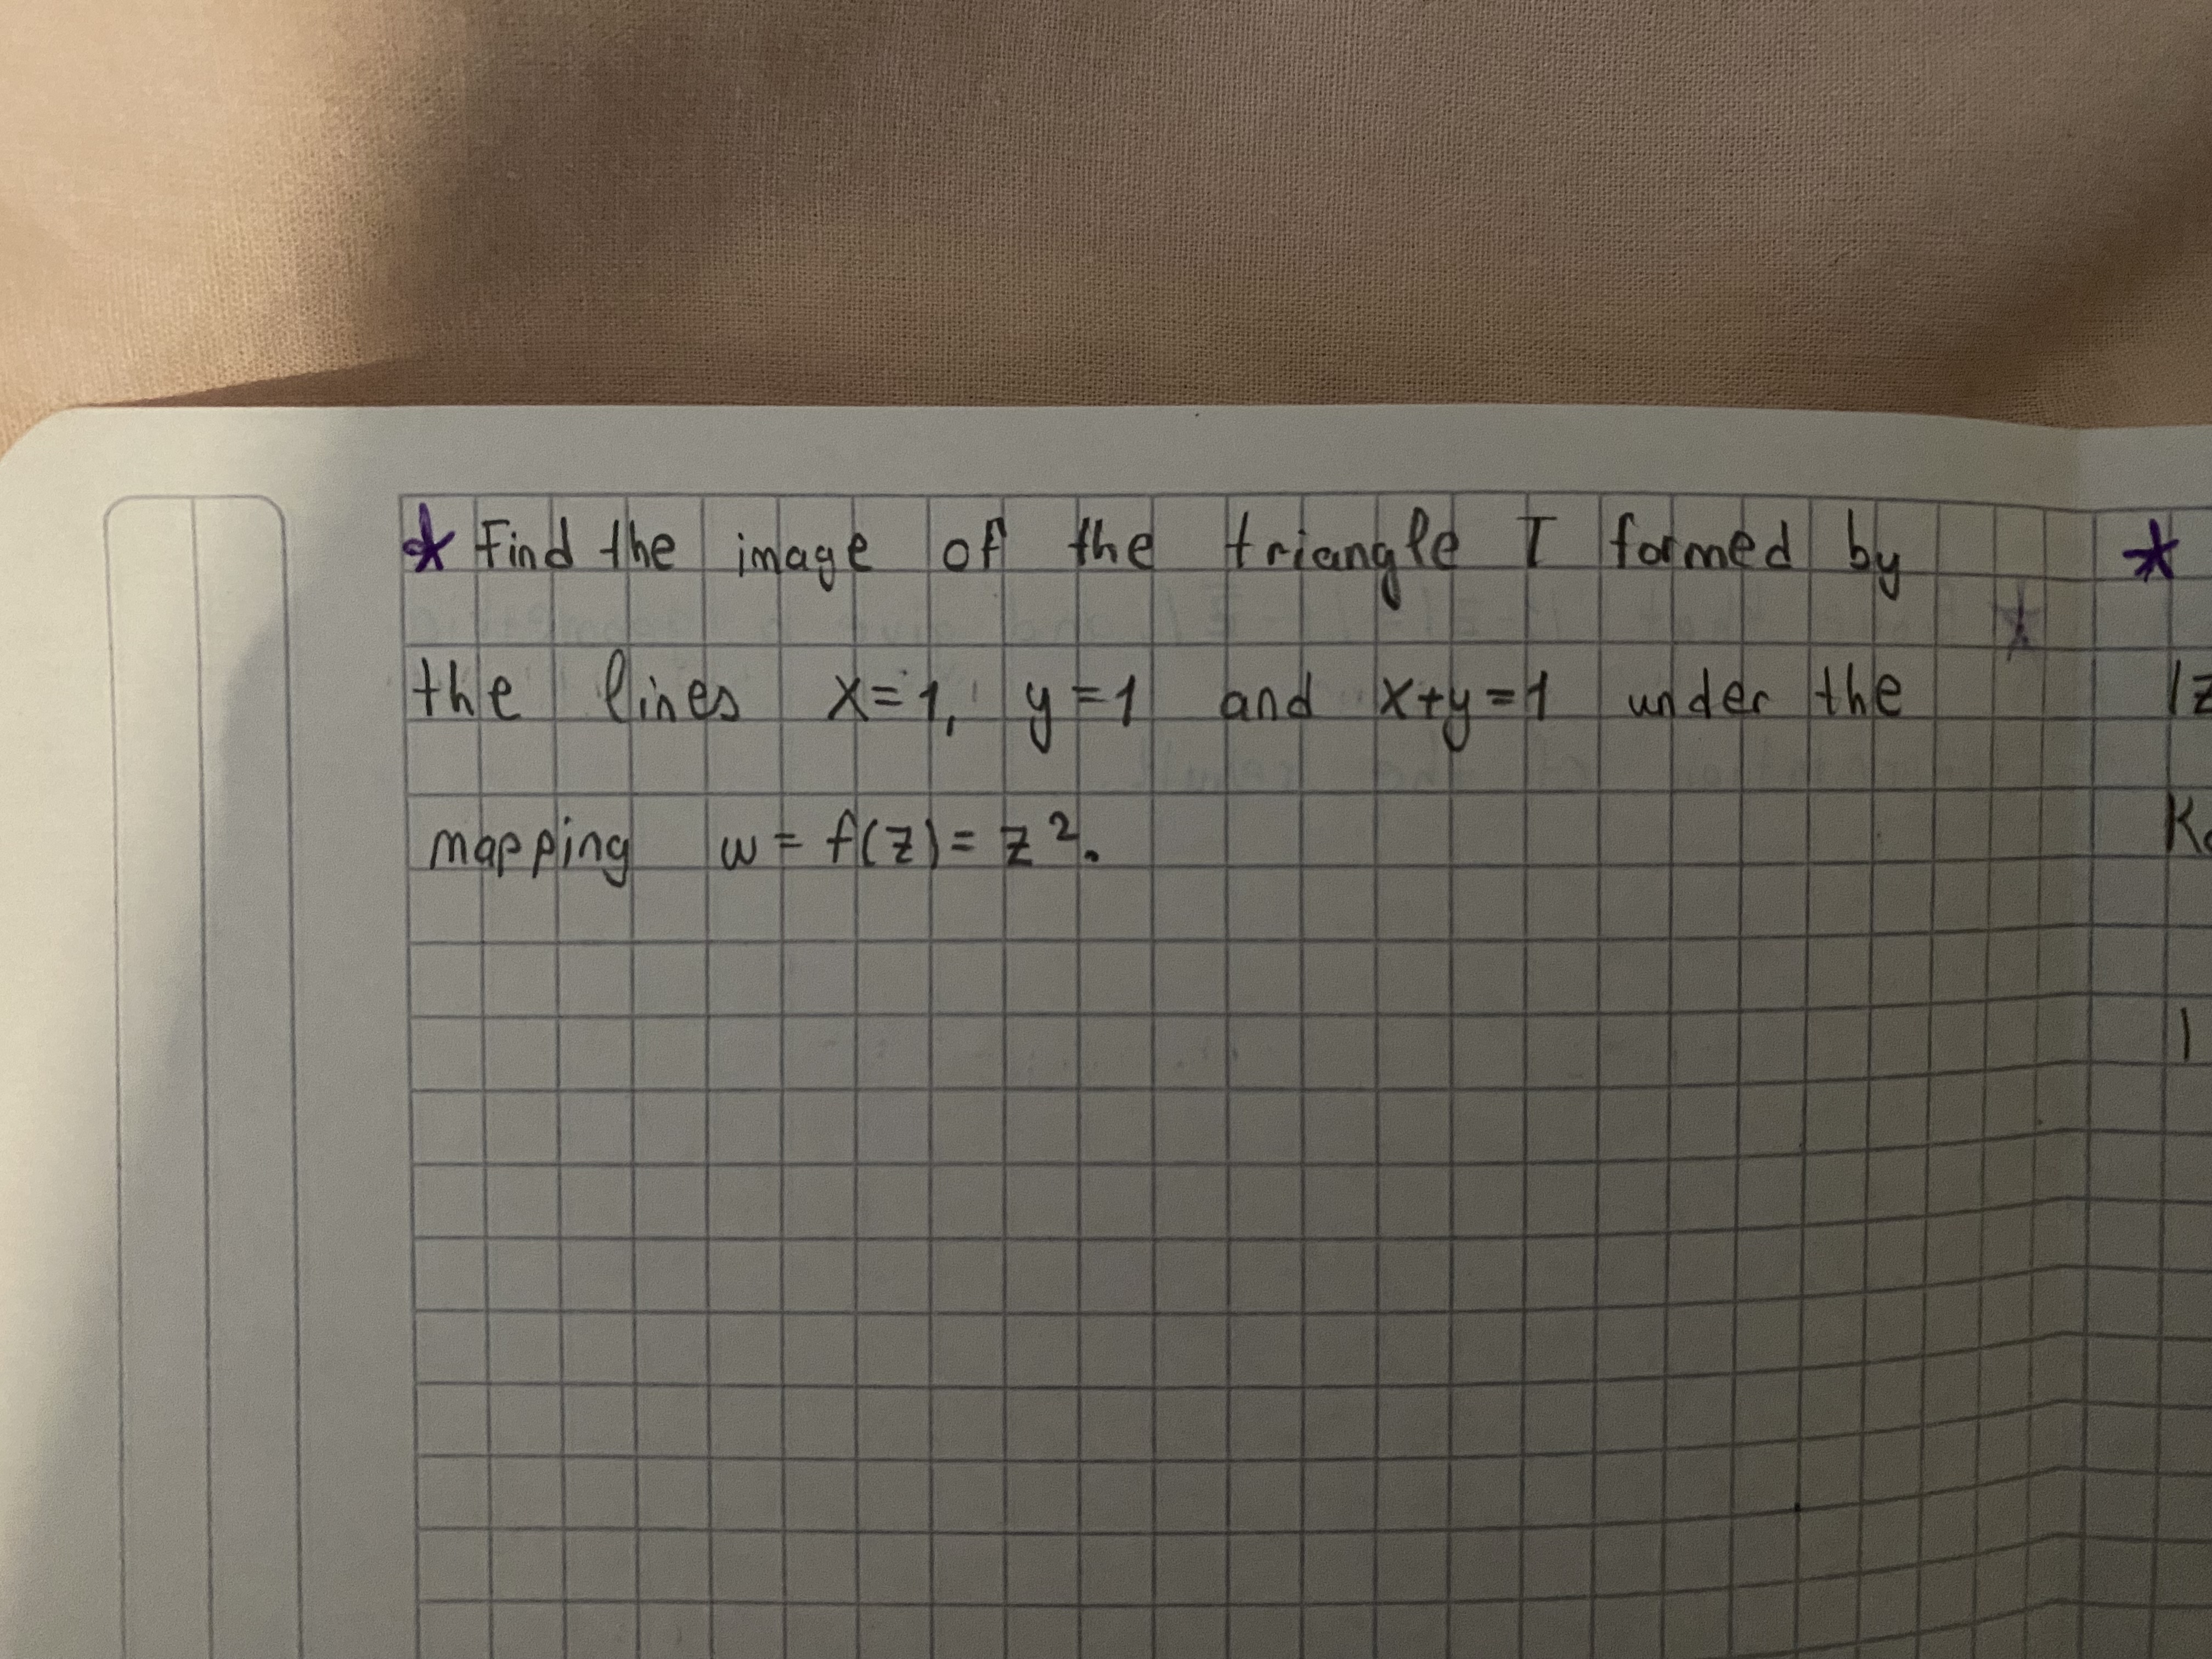 * Find the image of the triangle T formed by
the lines x=1, y=1 and x+y=1 under the
mapping w = f(z) = z².
*
|z
K
1